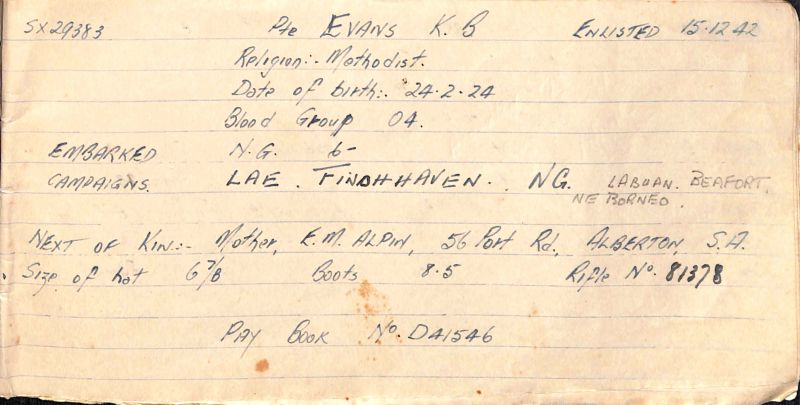 SX29383 Pte EVANS K. B ENLISTED 15.12.42
Religion:- Methodist.
Date of birth:. 24.2.24
Blood Group O4.
EMBARKED N.G. 6-
CAMPAIGNS. LAE. FINDHHAVEN. NG. LABUAN. BEAFORT.
NE BORNEO.
NEXT OF KIN:- Mother, E.M. ALPIN, 56 Port Rd., ALBERTON, S.A.
Size of hat 6 7/8 Boots 8.5 Rifle No. 81378
PAY BOOK No. DA1546